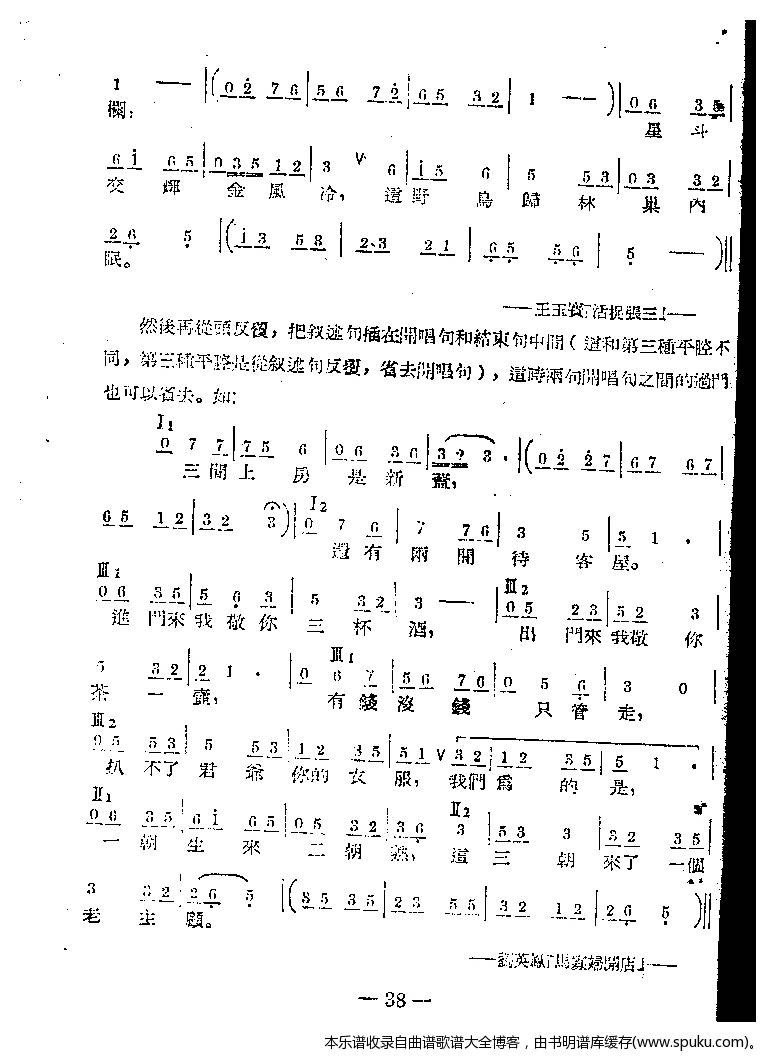 1 —— |(0 2 7 6|5 6 7 2|6 5 3 2|1 ——)|0 6 3 5|
欄: 星 斗
6 i 6 5|0 3 5 1 2|3 ∨ 6|i 5 6|5 5 3|0 3 3 2|
交 輝 金 風 冷, 這 野 鳥 歸 林 巢 內
2 6 5|(i 3 5 3|2·3 2 1|6 5 5 6|5 ——)||
眠。
——王玉寶「活捉張三」——
然後再從頭反復, 把叙述句插在開唱句和結束句中間(這和第三種平腔不
同, 第三種平腔是從叙述句反復, 省去開唱句), 這時兩句開唱句之間的過門
也可以省去。如:
I1
0 7 7|7 5 6|0 6 3 6|3 2 3 ·|(0 2 2 7|6 7 6 7|
三間上 房 是新 蓋,
6 5 1 2|3 2 3)|
I2
0 7 6|7 7 6|3 5|5 1 ·|
還有 兩間 待 客 屋。
III1
0 6 3 5|5 6 3|5 3 2|3 ——|
進 門來我敬你 三 杯 酒,
III2
0 5 2 3|5 2 3|
出 門來我敬 你
5 3 2|2 1 ·|
茶 一 壺,
III1
0 6 7|5 6 7 6|0 5 6|3 0|
有錢沒 錢 只管 走,
III2
0 5 5 3|5 5 3|1 2 3 5|5 1 ∨ 3 2|1 2 3 5|5 1 ·|
扒 不了 君 爺 你的 衣 服, 我們爲 的 是,
II1
0 6 3 5|6 i 6 5|0 5 3 2|3 6
一 朝 生 來 二 朝 熟,
II2
3|5 3 3|3 2 3 5|
這 三 朝 來了 一個
3 3 2|2 6 5|(3 5 3 5|2 3 5 5|3 2 1 2|2 6 5)||
老 主 顧。
— 38 —
本乐谱收录自曲谱歌谱大全博客，由书明谱库缓存(www.spuku.com)。